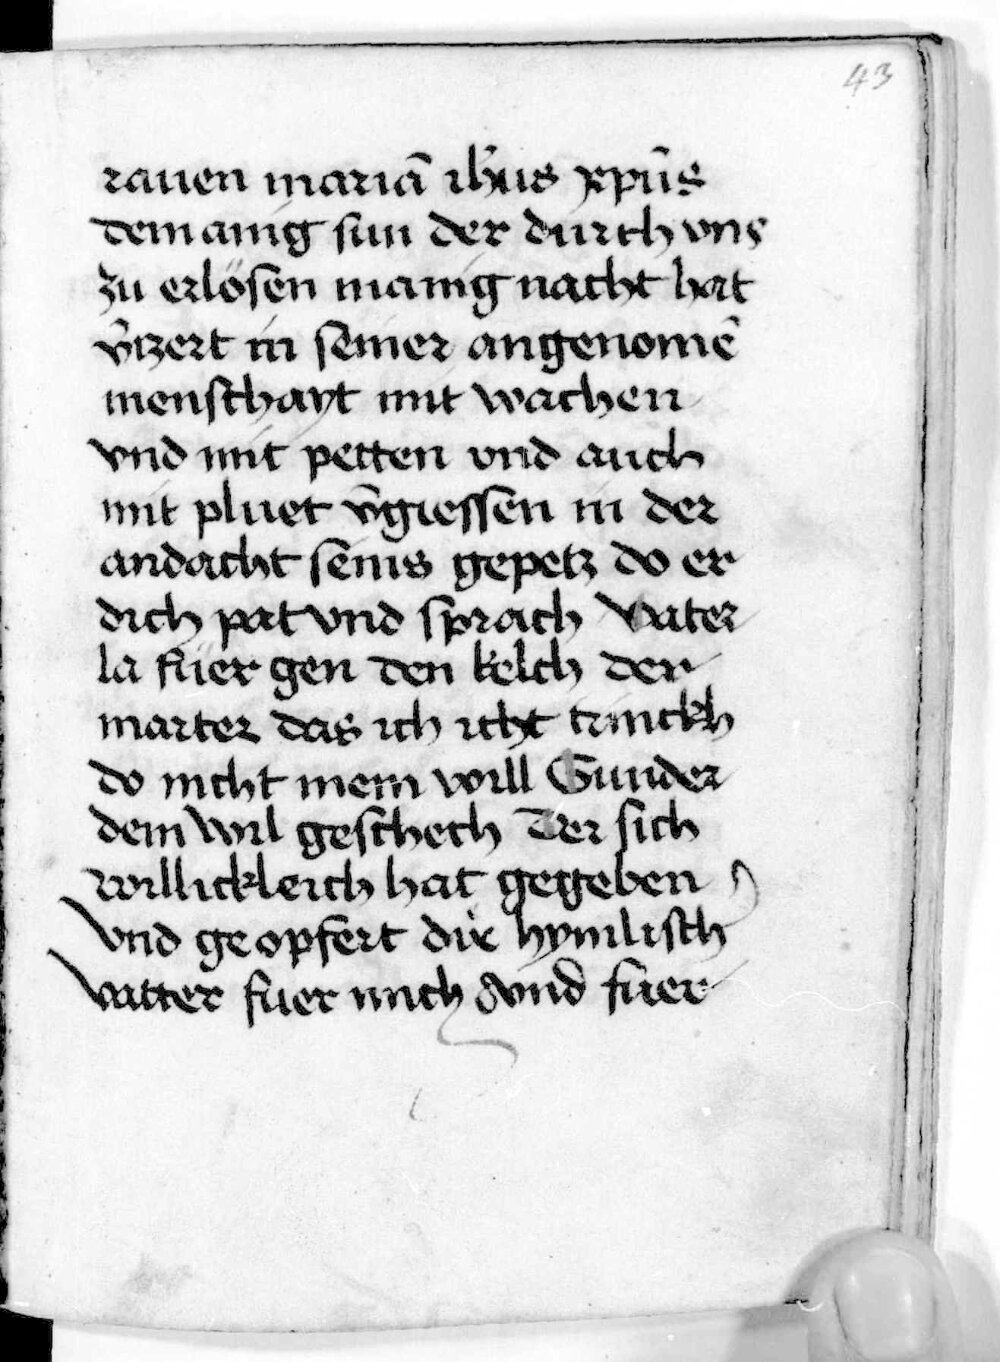 43
rauen mariā ih̄us xp̄us
dem ainig sun der durch vns
zu erlösen manig nacht hat
v̄tzert in seiner angenomē
menschayt mit wachen
vnd mit petten vnd auch
mit pluet v̄giessen in der
andacht seins gepetz do er
dich pat vnd sprach Vater
la füer gen den kelch der
marter das ich icht trinckh
do nicht mein will Sunder
dein wil geschech Der sich
willickleich hat gegeben
vnd geopfert dir hymlisch
vatter fuer mich vnd fuer